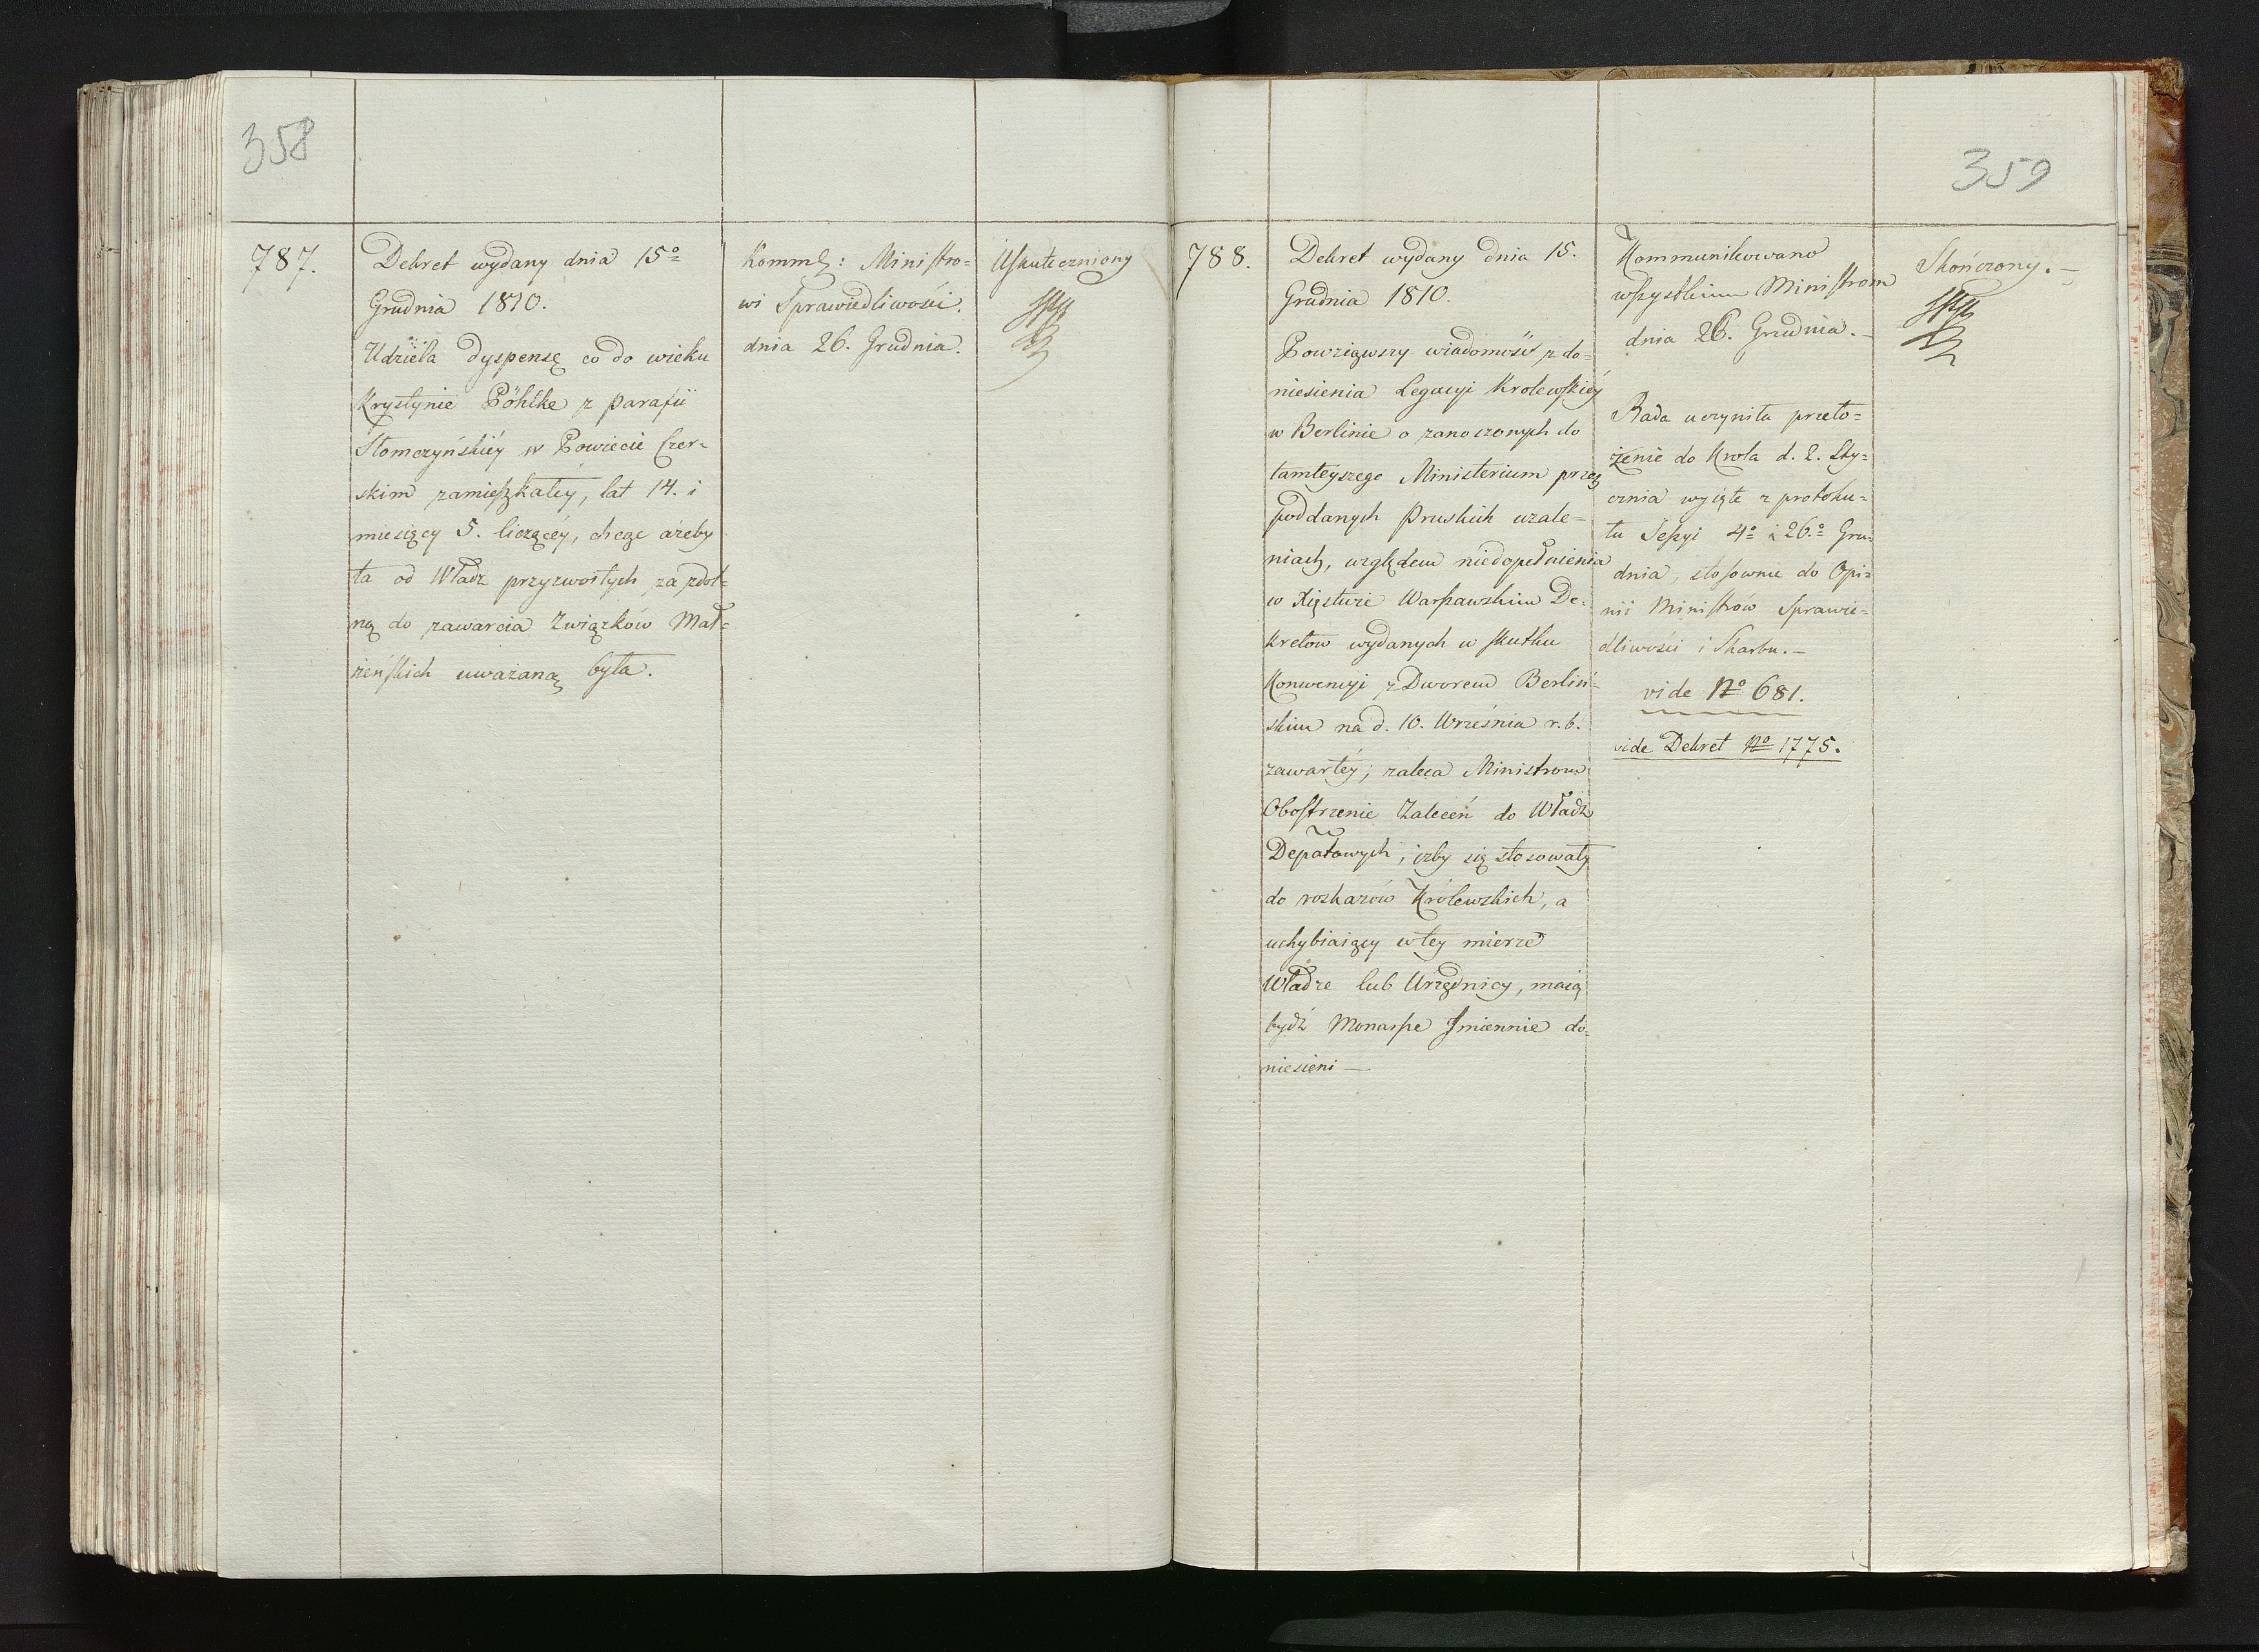 358
787.
Dekret wydany dnia 15º
Grudnia 1810.
Udziela dyspensę co do wieku
Krystynie Pöhlke z parafii
Słomczyńskiéy w Powiecie Czer-
skim zamieszkałéy, lat 14. i
miesięcy 5. liczącéy, chcąc ażeby
ta od Władz przyzwoitych za zdol-
ną do zawarcia Związków Mał-
żeńskich uważaną była.
Kommk: Ministro-
wi Sprawiedliwości.
dnia 26. Grudnia.
Uskuteczniony
359
788.
Dekret wydany dnia 15.
Grudnia 1810.
Powziąwszy wiadomość z do-
niesienia Legacyi Krolewskiéy
w Berlinie o zanoszonych do
tamteyszego Ministerium przez
poddanych Pruskich uzale-
niach, względem niedopełnienia
w Xięstwie Warszawskim De-
kretow wydanych w skutku
Konwencyi z Dworem Berliń-
skim na d. 10. Września r. b.
zawartéy; zaleca Ministrom
Obostrzenie Zaleceń do Władz
Depatowych, iżby się stosowały
do roskazów Królewskich, a
uchybiaiący w tey mierze
Władze lub Urzędnicy, maią
bydź Monarsze Imiennie do-
niesieni —
Kommunikowano
wszystkim Ministrom
dnia 26. Grudnia. —
Rada uczyniła przeło-
żenie do Krola d. 2. Sty-
cznia wyięte z protoku-
łu Sessyi 4º i 26.º Gru-
dnia, stosownie do Opi-
nii Ministrów Sprawie-
dliwości i Skarbu. —
vide Nº 681.
vide Dekret Nº 1775.
Skończony. —